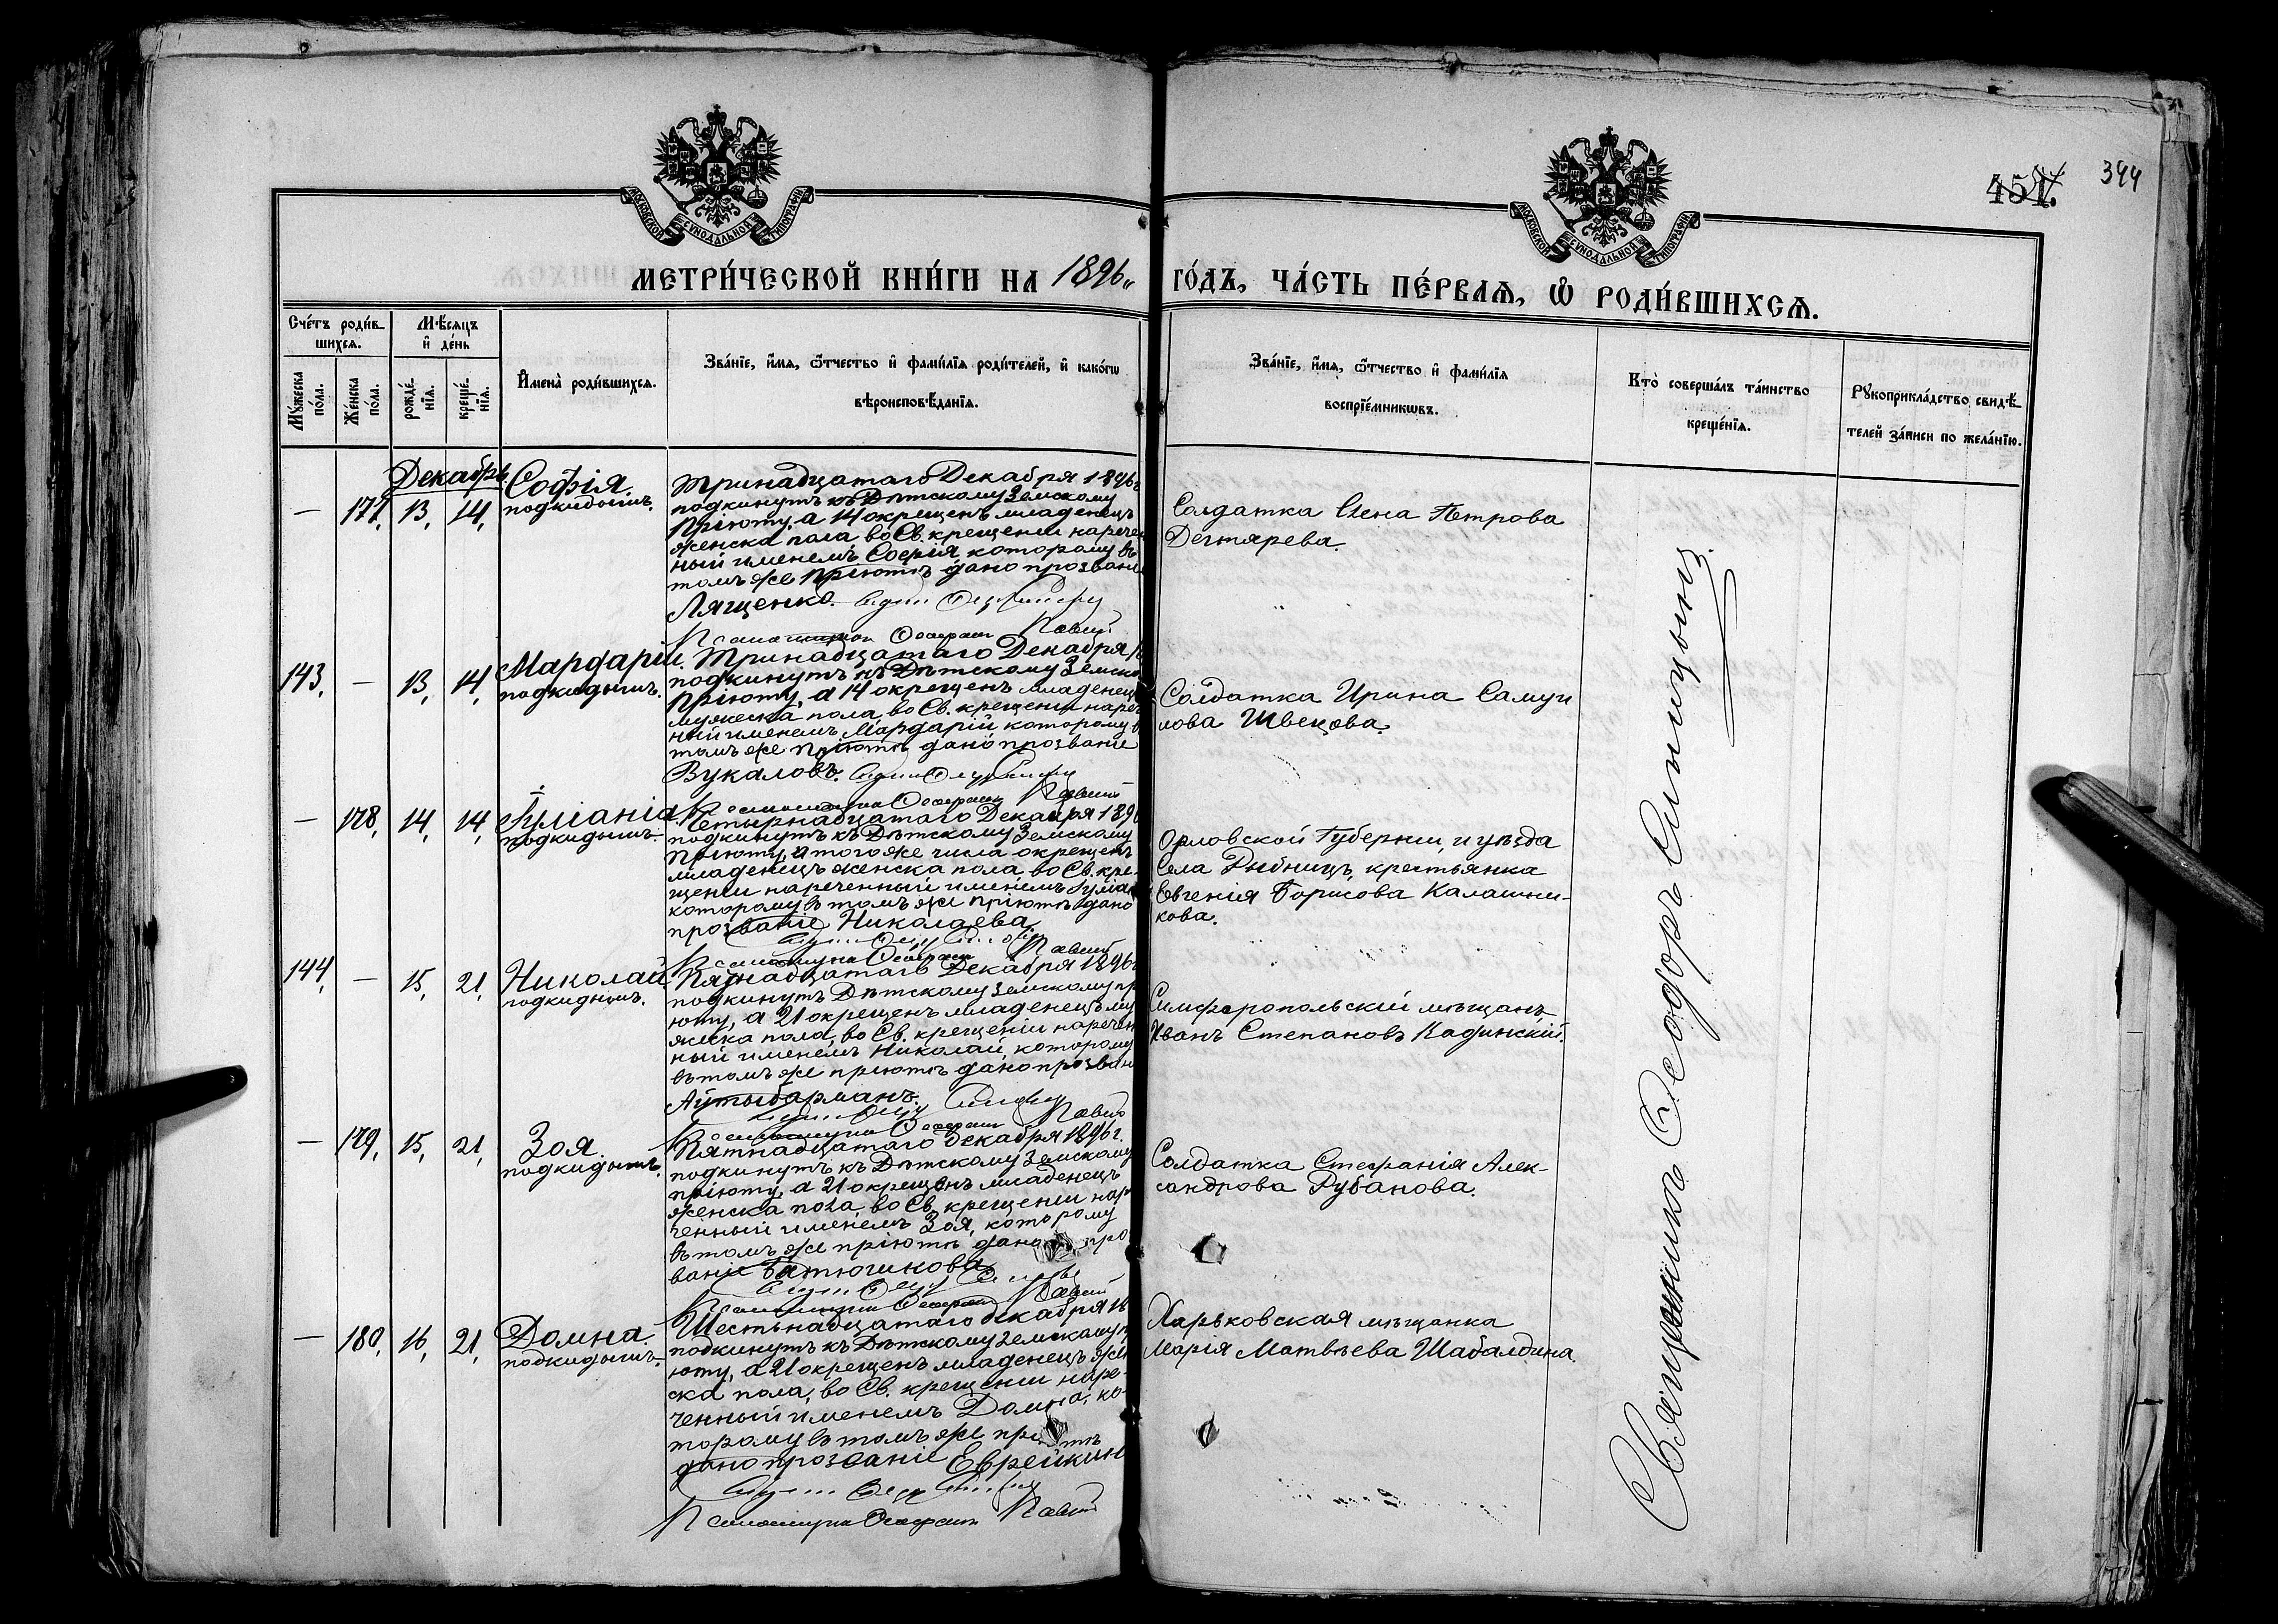 МОСКОВСКОЙ СѴНОДАЛЬНОЙ ТИПОГРАФІИ
МОСКОВСКОЙ СѴНОДАЛЬНОЙ ТИПОГРАФІИ
344
МЕТРИ́ЧЕСКОЙ КНИ́ГИ НА 1896
ГО́ДЪ, ЧА́СТЬ ПЕ́РВАѦ, Ѿ РОДИ́ВШИХСѦ.
Сче́тъ роди́в-
шихсѧ.
Мꙋжеска по́ла.
Же́нска по́ла.
Мѣ́сѧцъ
и҆ де́нь
рожде́-
нїѧ.
креще́-
нїѧ.
И҆мена̀ роди́вшихсѧ.
Зва́нїе, и҆́мѧ, ѻ҆́тчество и҆ фами́лїѧ роди́телей, и҆ како́гѡ
вѣроисповѣ́данїѧ.
Зва́нїе, и҆́мѧ, ѻ҆́тчество и҆ фами́лїѧ
воспрїе́мникѡвъ.
Кто̀ соверша́лъ та́инство
креще́нїѧ.
Рꙋкоприкла́дство свидѣ́-
телей за́писи по жела́нїю.
Декабрь
— 177, 13, 14,
Софія
подкидышъ.
Тринадцатаго Декабря 1896 г.
подкинутъ къ Дѣтскому Земскому
Пріюту, а 14 окрещенъ младенецъ
женска пола, во Св. крещеніи наречен
ный именемъ Софія, которому въ
томъ же Пріютѣ дано прозвані
Лященко.
Солдатка Елена Петрова
Дегтярева.
143, — 13, 14,
Мардарій.
подкидышъ.
Тринадцатаго Декабря
подкинутъ къ Дѣтскому Земско
Пріюту, а 14 окрещенъ младенец
мужеска пола, во Св. крещеніи нареч
ный именемъ Мардарій, которому в
томъ же пріютѣ дано прозваніе
Вукаловъ.
Солдатка Ирина Самуи
лова Швецова.
— 178, 14, 14,
Іуліанія
подкидышъ.
Четырнадцатаго Декабря 1896
подкинутъ къ Дѣтскому Земскому
Пріюту, а того же числа окрещенъ
младенецъ женска пола, во Св. кре-
щеніи нареченный именемъ Іуліан
которому въ томъ же пріютѣ дано
прозваніе Николаева.
Орловской Губерніи, и уѣзда
Села Рыбницъ, крестьянка
Евгенія Борисова Калашни-
кова.
144, — 15, 21,
Николай
подкидышъ.
Пятнадцатаго Декабря 1896 г
подкинутъ Дѣтскому Земскому прі
юту, а 21 окрещенъ младенецъ му
жеска пола, во Св. крещеніи наречен
ный именемъ Николай, которому
въ томъ же пріютѣ дано прозван
Айтыбарманъ.
Симферопольскій мѣщанъ
Иванъ Степановъ Кадинскій.
— 179, 15, 21,
Зоя.
подкидышъ.
Пятнадцатаго Декабря 1896 г.
подкинутъ къ Дѣтскому Земскому
пріюту, а 21 окрещенъ младенецъ
женска пола, во Св. крещеніи наре
ченный именемъ Зоя, которому
въ томъ же пріютѣ дано про
ваніе Батюшкова
Солдатка Стефанія Алек-
сандрова Рубанова.
— 180, 16, 21,
Домна.
подкидышъ.
Шестьнадцатаго Декабря 18
подкинутъ къ Дѣтскому Земскому п
юту, а 21 окрещенъ младенецъ жен
ска пола, во Св. крещеніи наре-
ченный именемъ Домна, ко-
торому въ томъ же пріютѣ
дано прозваніе Еврейкина
Харьковская мѣщанка
Марія Матвѣева Шабалдина.
Священникъ Ѳеодоръ Синицынъ.